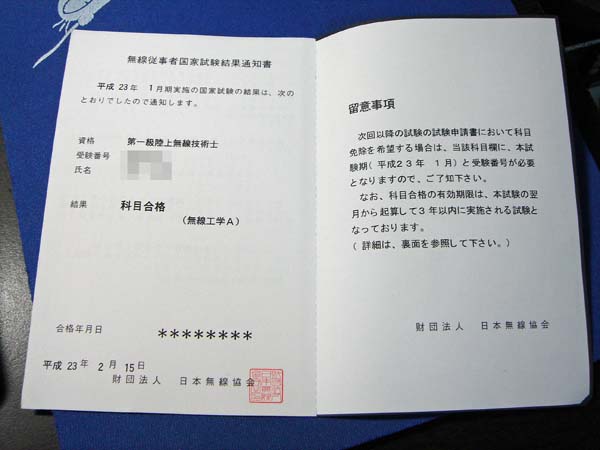 無線従事者国家試験結果通知書
平成 23年 1月期実施の国家試験の結果は、次の
とおりでしたので通知します。
資格 第一級陸上無線技術士
受験番号
氏名
結果 科目合格
(無線工学A)
合格年月日 ********
平成 23年 2月 15日
財団法人 日本無線協会
留意事項
次回以降の試験の試験申請書において科目
免除を希望する場合は、当該科目欄に、本試
験期(平成23年 1月)と受験番号が必要
となりますので、ご了知下さい。
なお、科目合格の有効期限は、本試験の翌
月から起算して3年以内に実施される試験と
なっております。
(詳細は、裏面を参照して下さい。)
財団法人 日本無線協会